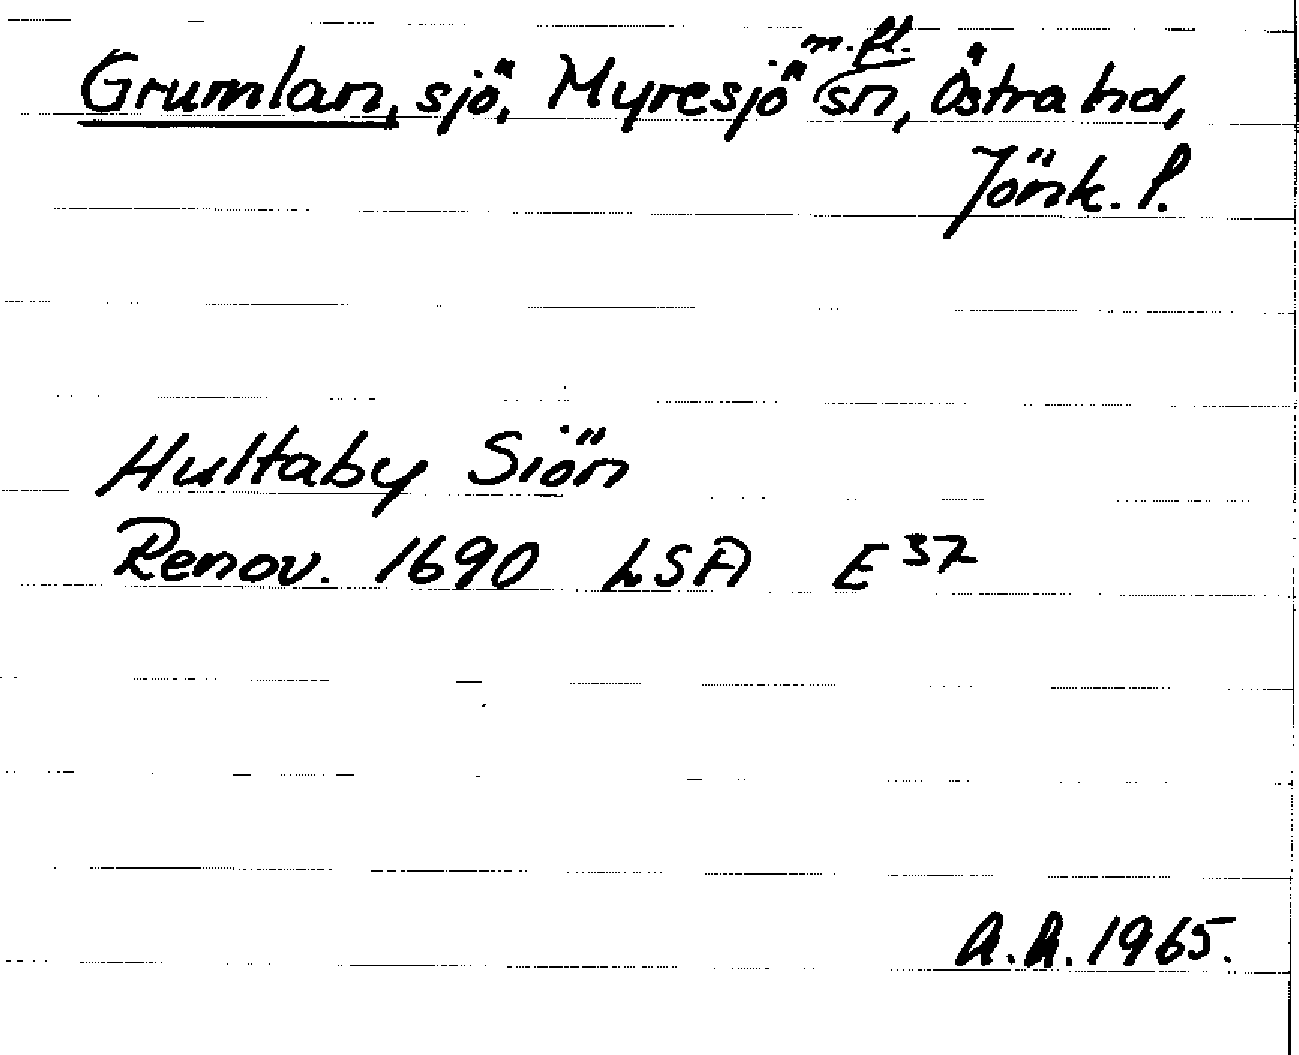 Grumlan, sjö, Myresjö m.fl. sn, Östra hd,
Jönk. l.
Hultaby Siön
Renov. 1690 LSA E37
A.A. 1965.